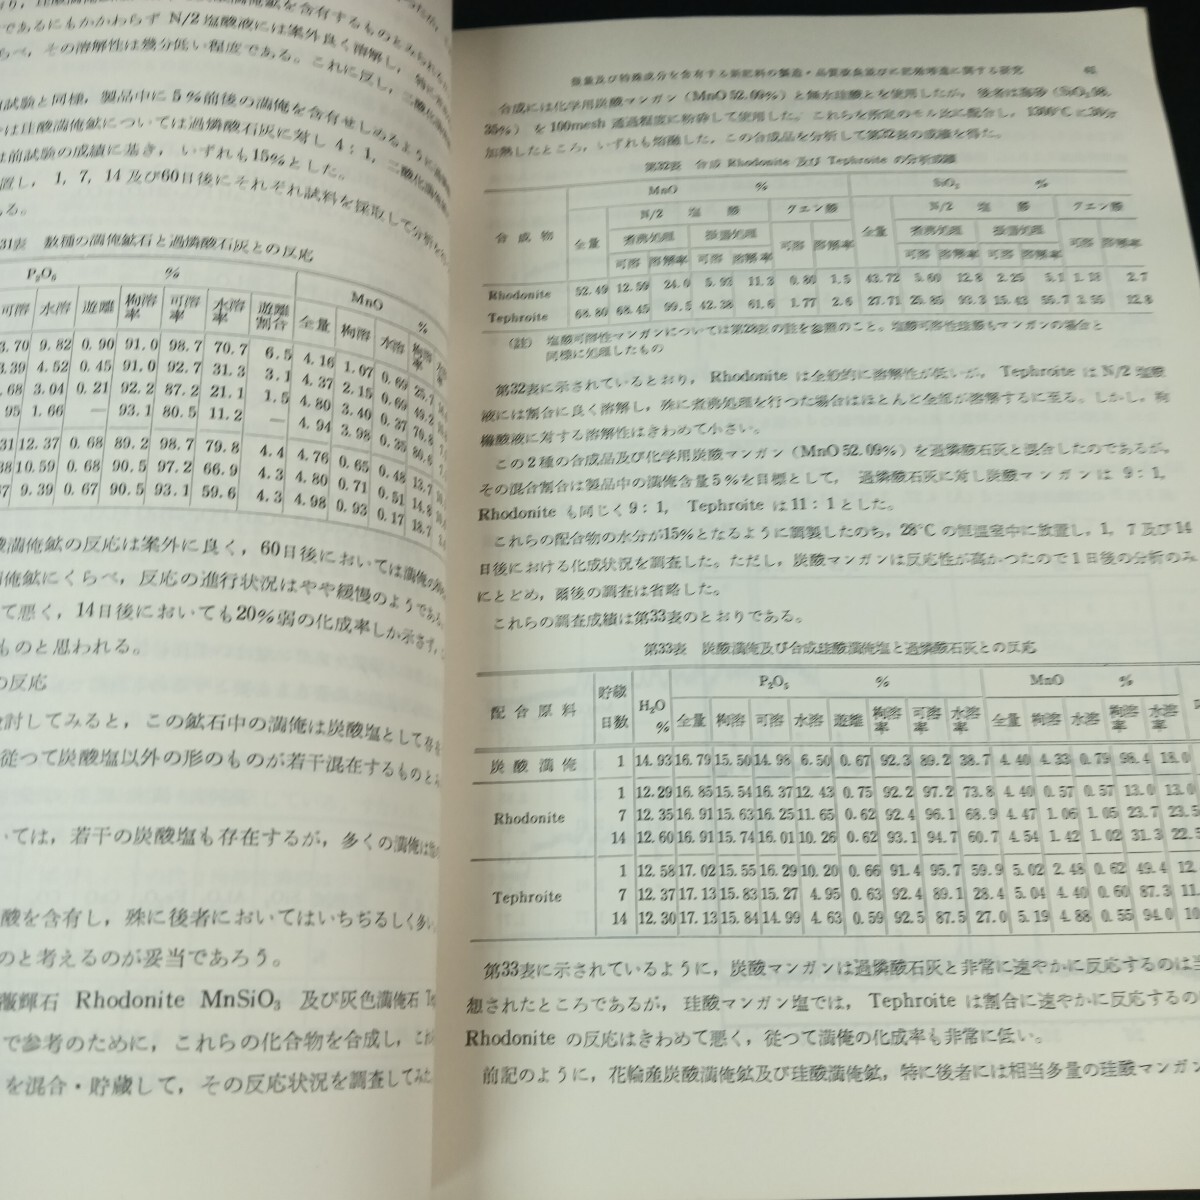 であるにもかかわらず N/2 塩酸液には案外良く溶解し,
その溶解性は幾分低い程度である。これに反し,
試験と同様, 製品中に5%前後の満俺を含有せしめるように
は珪酸満俺鉱については過燐酸石灰に対し 4:1,
は前試験の成績に基き, いずれも15%とした。
置し, 1, 7, 14 及び60日後にそれぞれ試料を採取して分析
ある。
31表 数種の満俺鉱石と過燐酸石灰との反応
P₂O₅ % MnO %
可溶 水溶 遊離 枸溶率 可溶率 水溶率 遊離割合 全量 枸溶 水溶 枸溶率
3.70 9.82 0.90 91.0 98.7 70.7 6.5 4.16 1.07 0.69
3.39 4.52 0.45 91.0 92.7 31.3 3.1 4.37 2.15 0.69 49.2
.68 3.04 0.21 92.2 87.2 21.1 1.5 4.80 3.40 0.37 70.8
95 1.66 — 93.1 80.5 11.2 — 4.94 3.98 0.35 80.6
31 12.37 0.68 89.2 98.7 79.8 4.4 4.76 0.65 0.48 13.7
38 10.59 0.68 90.5 97.2 66.9 4.3 4.80 0.71 0.51 14.8
9.39 0.67 90.5 93.1 59.6 4.3 4.98 0.93 0.17 18.7
酸満俺鉱の反応は案外に良く, 60日後においては満俺の
満俺鉱にくらべ, 反応の進行状況はやや緩慢のようである。
て悪く, 14日後においても20%弱の化成率しか示さず,
ものと思われる。
の反応
検討してみると, この鉱石中の満俺は炭酸塩として存
従つて炭酸塩以外の形のものが若干混在するものと
いては, 若干の炭酸塩も存在するが, 多くの満俺は
酸を含有し, 殊に後者においてはいちぢるしく多
のと考えるのが妥当であろう。
薇輝石 Rhodonite MnSiO₃ 及び灰色満俺石
で参考のために, これらの化合物を合成し,
を混合・貯蔵して, その反応状況を調査してみた
微量及び特殊成分を含有する新肥料の製造・品質改良並びに肥効増進に関する研究
合成には化学用炭酸マンガン (MnO 52.09%) と無水珪酸とを使用したが, 後者は海砂 (SiO₂ 98.
35%) を 100mesh 通過程度に粉砕して使用した。これらを所定のモル比に配合し, 1300°C に30分
加熱したところ, いずれも熔融した。この合成品を分析して第32表の成績を得た。
第32表 合成 Rhodonite 及び Tephroite の分析成績
合成物 MnO % SiO₂ %
全量 N/2 塩酸 クエン酸 全量 N/2 塩酸 クエン酸
煮沸処理 振盪処理 可溶 溶解率 煮沸処理 振盪処理 可溶 溶解率
可溶 溶解率 可溶 溶解率 可溶 溶解率 可溶 溶解率
Rhodonite 52.49 12.59 24.0 5.93 11.3 0.80 1.5 43.72 5.60 12.8 2.25 5.1 1.18 2.7
Tephroite 68.80 68.45 99.5 42.38 61.6 1.77 2.6 27.71 25.85 93.3 15.43 55.7 3.55 12.8
(註) 塩酸可溶性マンガンについては第28表の註を参照のこと。塩酸可溶性珪酸もマンガンの場合と
同様に処理したもの
第32表に示されているとおり, Rhodonite は全般的に溶解性が低いが, Tephroite は N/2 塩酸
液には割合に良く溶解し, 殊に煮沸処理を行つた場合はほとんど全部が溶解するに至る。しかし, 枸
櫞酸液に対する溶解性はきわめて小さい。
この2種の合成品及び化学用炭酸マンガン (MnO 52.09%) を過燐酸石灰と混合したのであるが,
その混合割合は製品中の満俺含量5%を目標として, 過燐酸石灰に対し炭酸マンガンは 9:1,
Rhodonite も同じく 9:1, Tephroite は 11:1 とした。
これらの配合物の水分が15%となるように調製したのち, 28°C の恒温室中に放置し, 1, 7 及び 14
日後における化成状況を調査した。ただし, 炭酸マンガンは反応性が高かつたので1日後の分析のみ
にとどめ, 爾後の調査は省略した。
これらの調査成績は第33表のとおりである。
第33表 炭酸満俺及び合成珪酸満俺塩と過燐酸石灰との反応
配合原料 貯蔵日数 H₂O % P₂O₅ % MnO %
全量 枸溶 可溶 水溶 遊離 枸溶率 可溶率 水溶率 全量 枸溶 水溶 枸溶率 水溶率
炭酸満俺 1 14.93 16.79 15.50 14.98 6.50 0.67 92.3 89.2 38.7 4.40 4.33 0.79 98.4 18.0
Rhodonite 1 12.29 16.85 15.54 16.37 12.43 0.75 92.2 97.2 73.8 4.40 0.57 0.57 13.0 13.0
7 12.35 16.91 15.63 16.25 11.65 0.62 92.4 96.1 68.9 4.47 1.06 1.05 23.7 23.5
14 12.60 16.91 15.74 16.01 10.26 0.62 93.1 94.7 60.7 4.54 1.42 1.02 31.3 22.5
Tephroite 1 12.58 17.02 15.55 16.29 10.20 0.66 91.4 95.7 59.9 5.02 2.48 0.62 49.4 12.
7 12.37 17.13 15.83 15.27 4.95 0.63 92.4 89.1 28.4 5.04 4.40 0.60 87.3 11.
14 12.30 17.13 15.84 14.99 4.63 0.59 92.5 87.5 27.0 5.19 4.88 0.55 94.0 10
第33表に示されているように, 炭酸マンガンは過燐酸石灰と非常に速やかに反応するのは当
想されたところであるが, 珪酸マンガン塩では, Tephroite は割合に速やかに反応するの
Rhodonite の反応はきわめて悪く, 従つて満俺の化成率も非常に低い。
前記のように, 花輪産炭酸満俺鉱及び珪酸満俺鉱, 特に後者には相当多量の珪酸マンガン